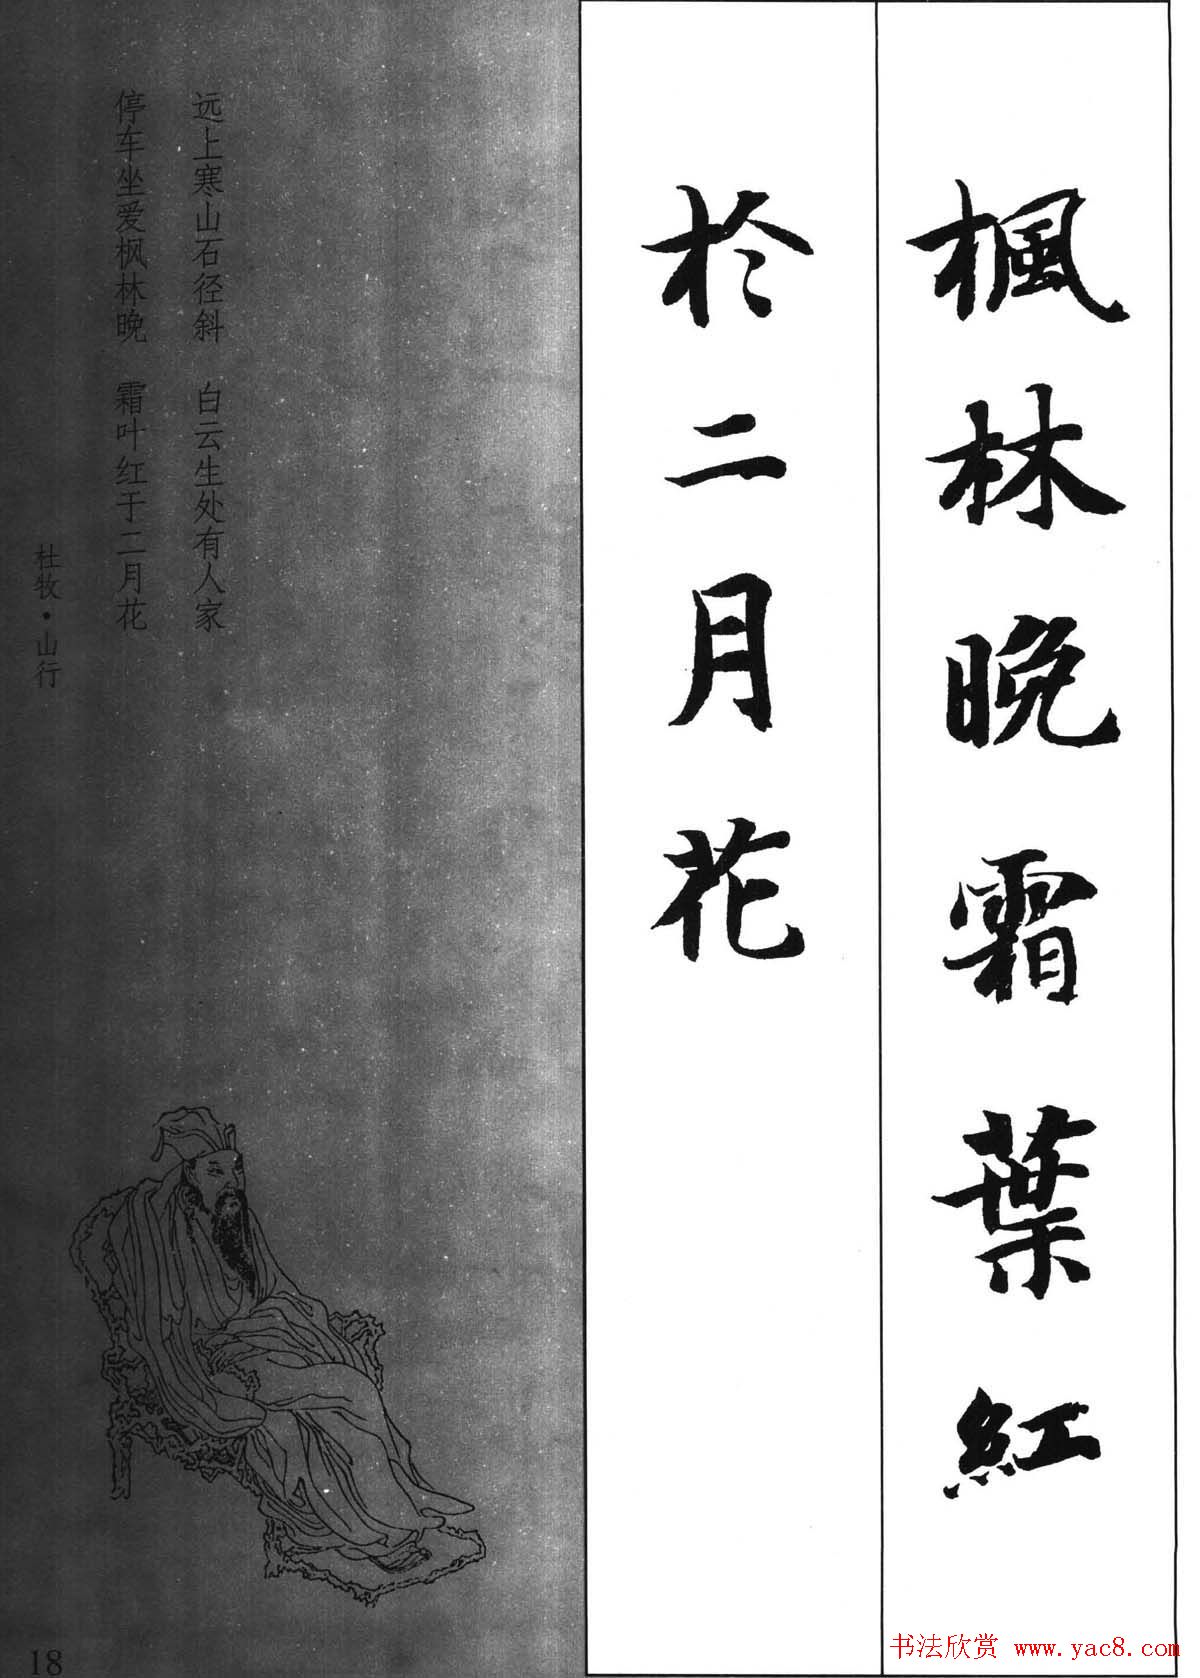 楓林晚霜葉紅
於二月花
远上寒山石径斜 白云生处有人家
停车坐爱枫林晚 霜叶红于二月花
杜牧·山行
18
书法欣赏 www.yac8.com